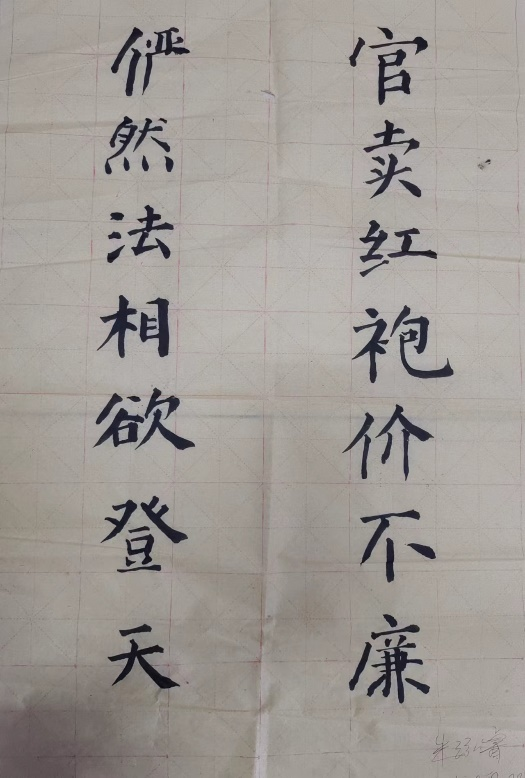 官卖红袍价不廉
俨然法相欲登天